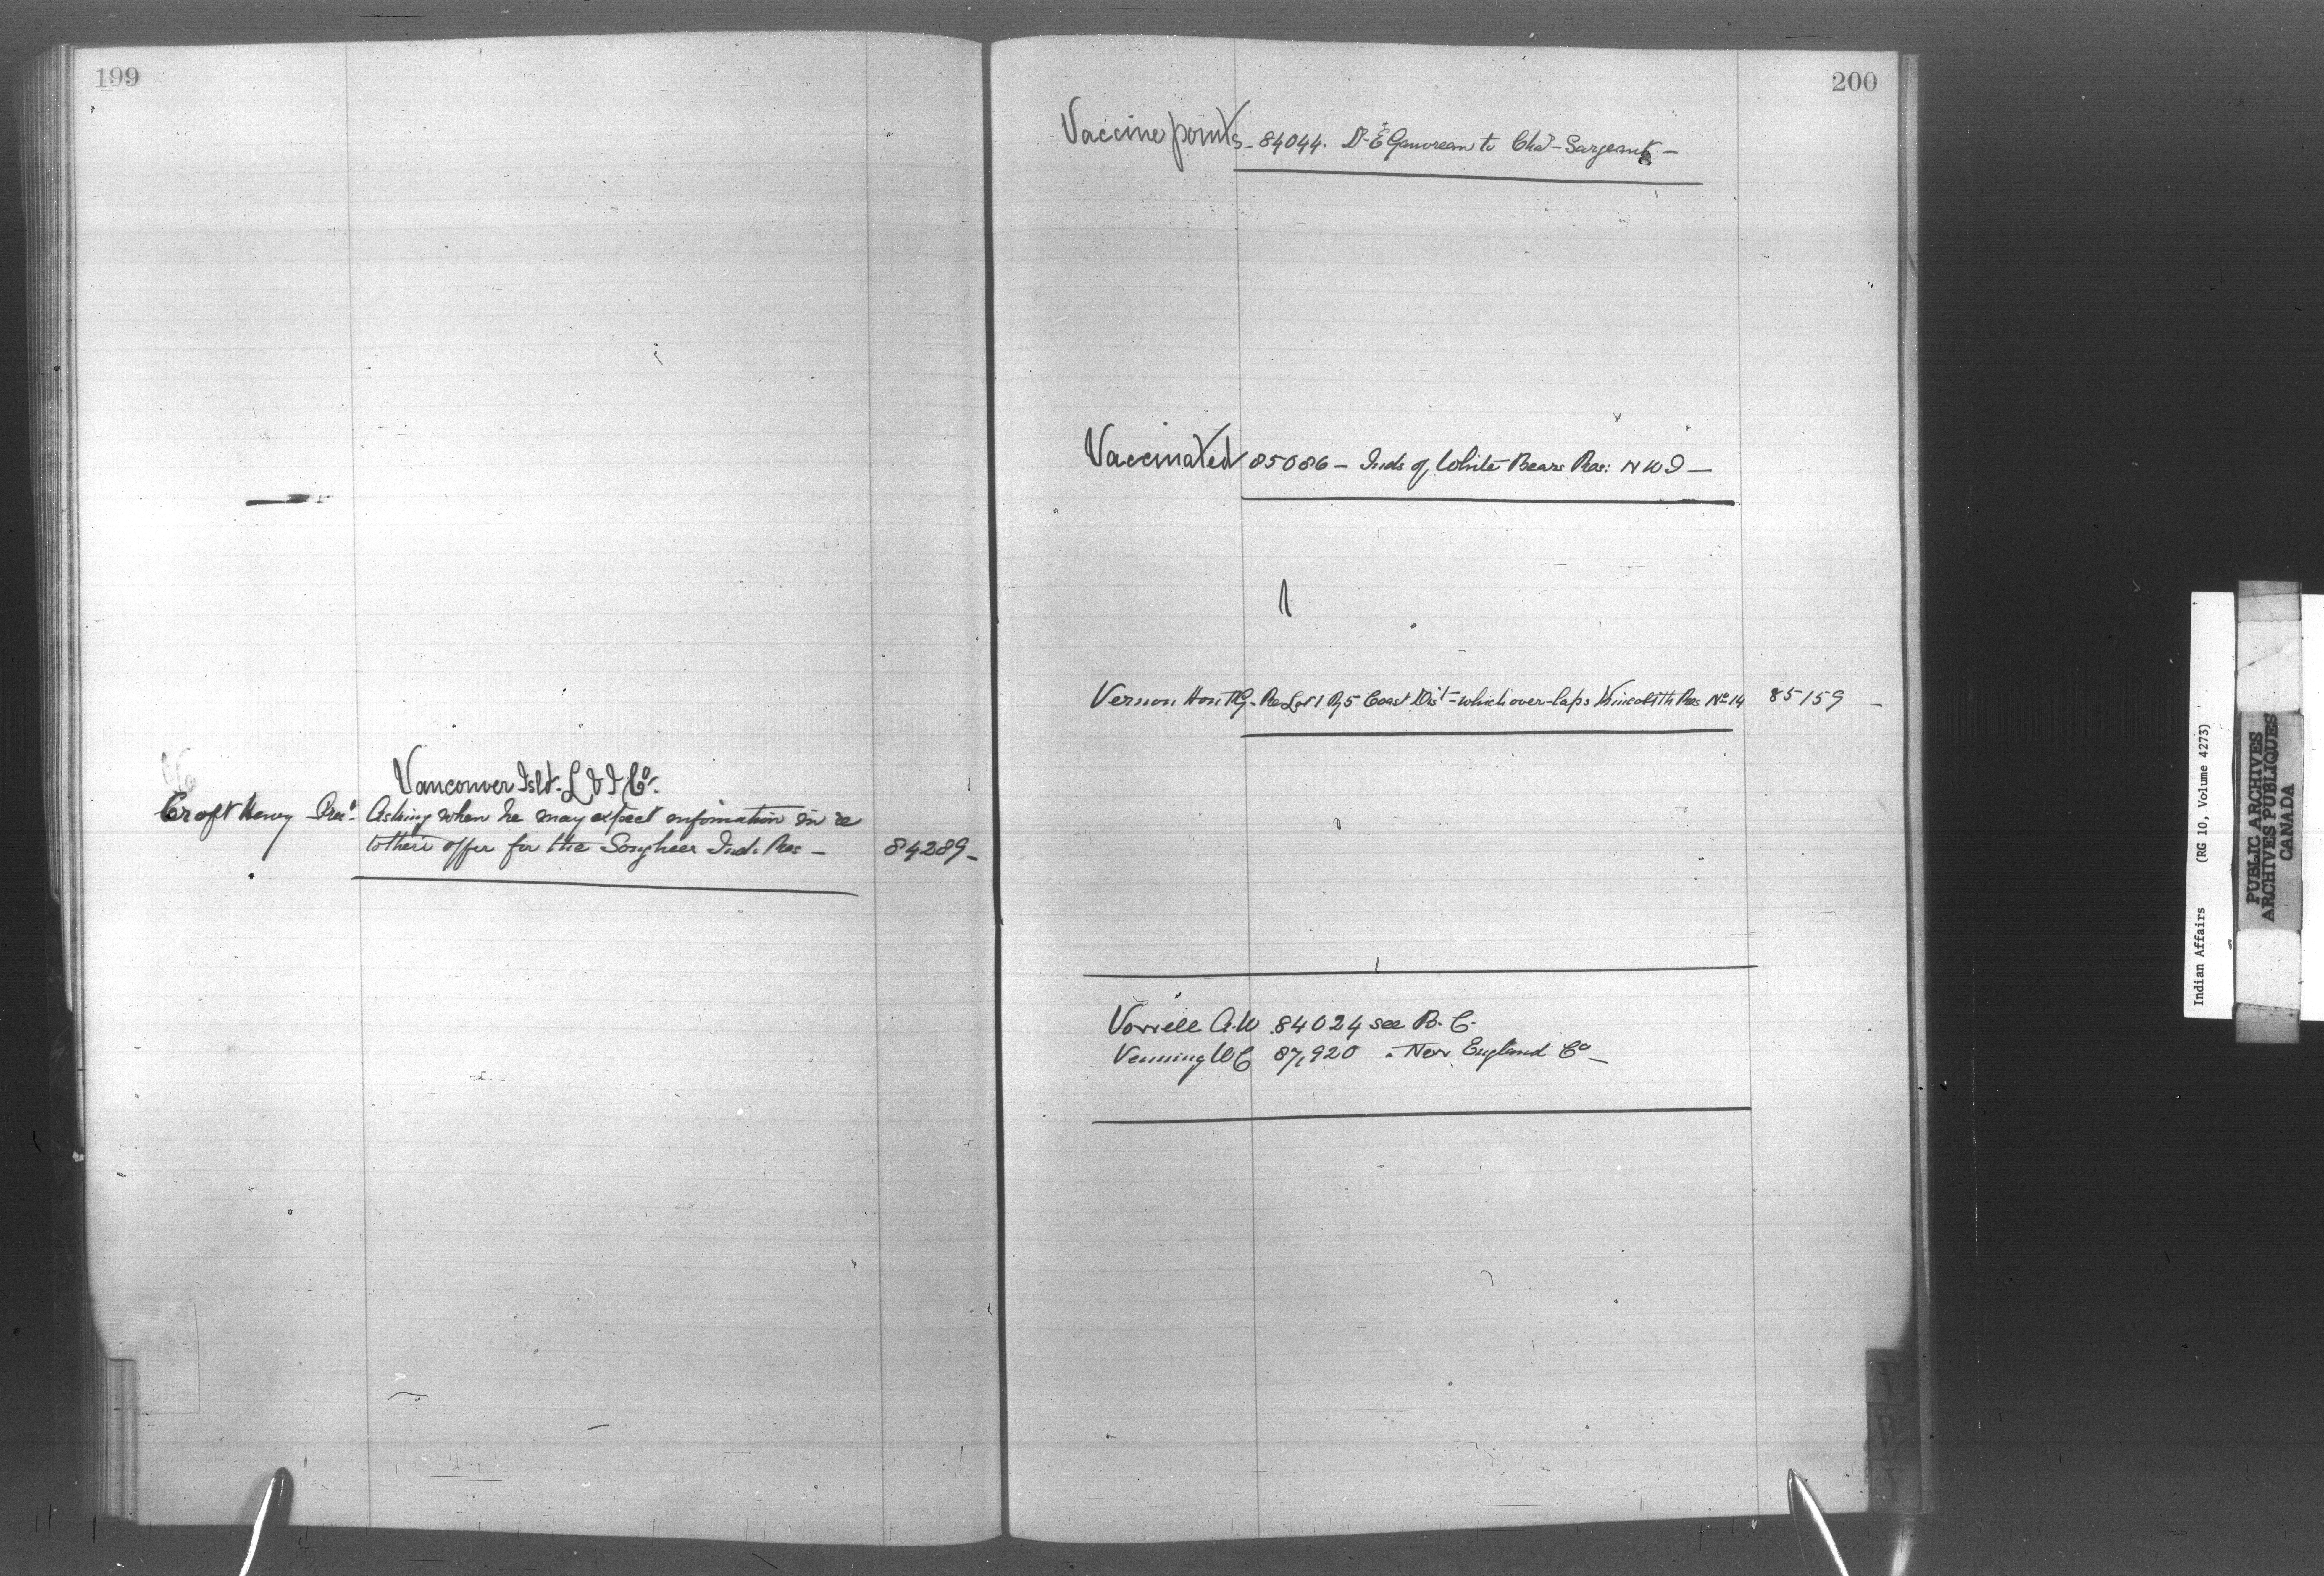 199
Vancouver Isld. L & I Co.
Croft Henry Pres. Asking when he may expect information in re
to their offer for the Songhees Ind. Res —
84289 —
200
Vaccine points — 84044. Dr. E to Chas — Sargeant —
Vaccinated 85086 — Inds of White Bears Res: N W I —
Vernon Hon F. G. Re Lot 1 R 5 Coast Dist — which over-laps Kincolith Res No 14 85159 —
Vowell A. W 84024 see B. C.
Venning W C 87,920 " New England Co —
V
W
Y
Indian Affairs (RG 10, Volume 4273)
PUBLIC ARCHIVES
ARCHIVES PUBLIQUES
CANADA